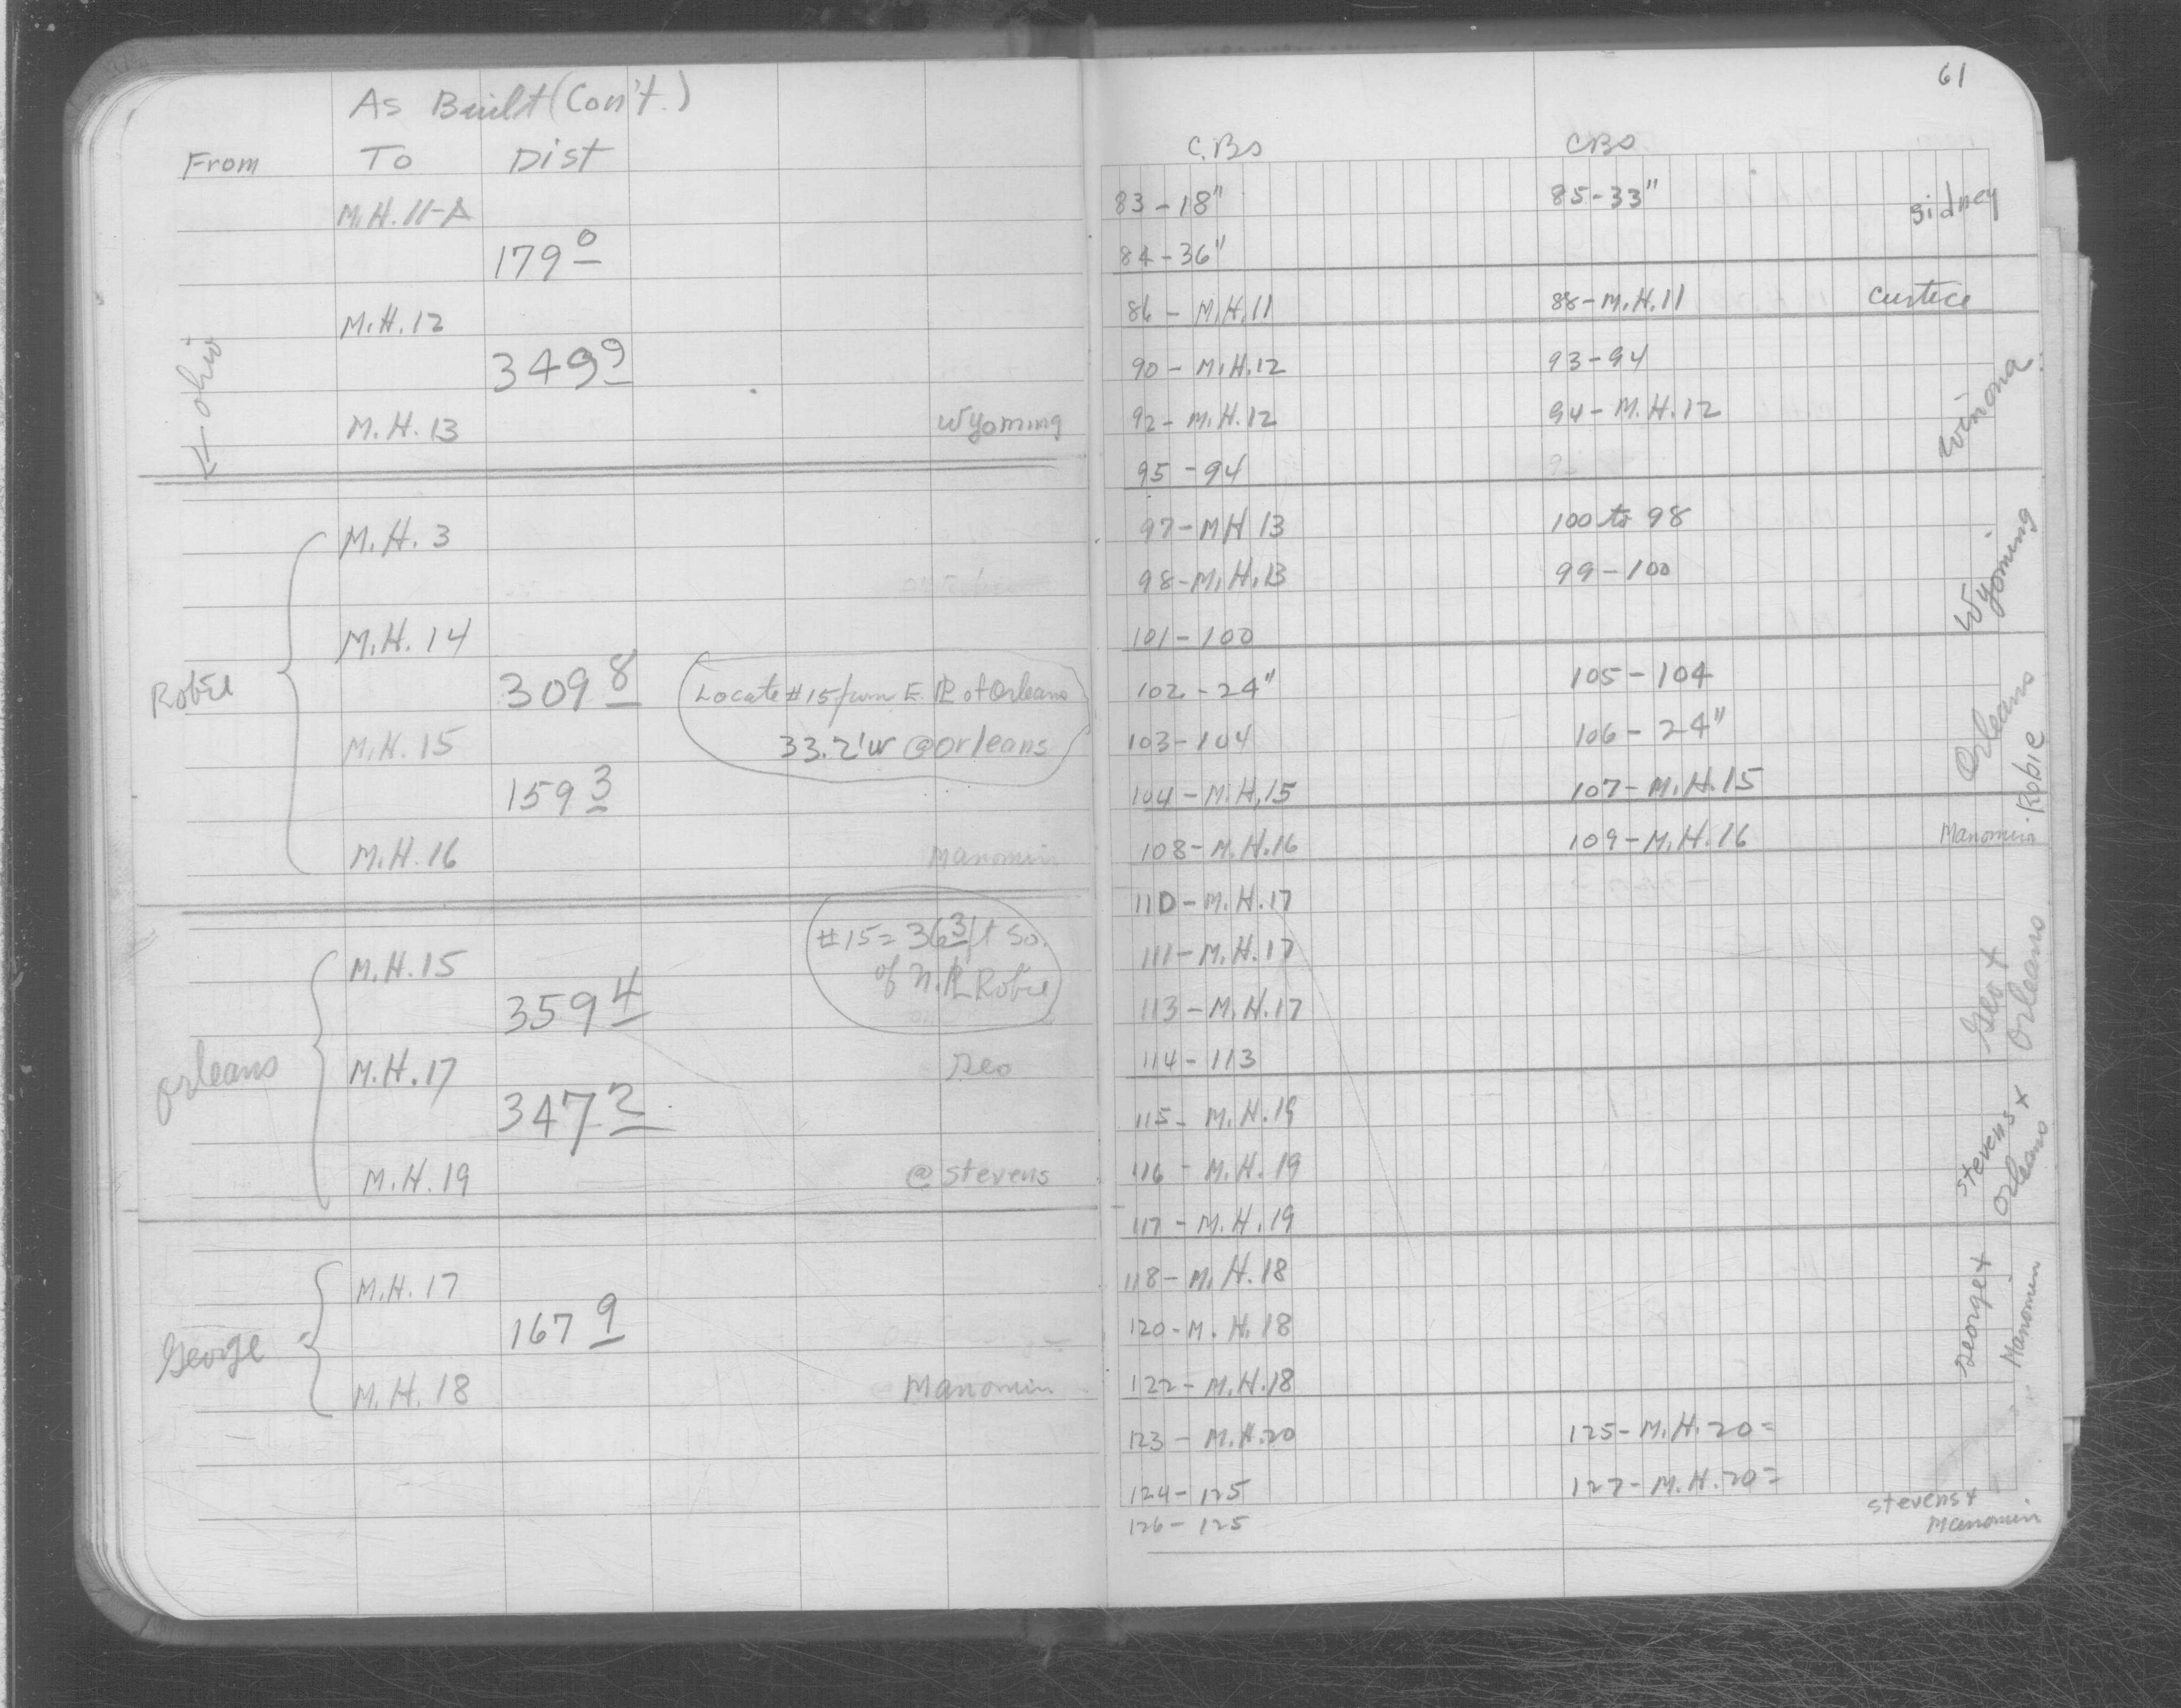 As Built (Con't.)
From To Dist
M.H. 11-A
179 0
M.H. 12
← Ohio
349 9
M.H. 13 Wyoming
M.H. 3
M.H. 14
Robie
309 8
Locate #15 from E. PL of Orleans
33.2' W @ Orleans
M.H. 15
159 3
M.H. 16 Manomin
#15 = 36 3 ft So.
of N. PL Robie
M.H. 15
359 4
Orleans
M.H. 17 Geo
347 2
M.H. 19 @ Stevens
M.H. 17
George
167 9
M.H. 18 Manomin
61
C.Bs CBs
83 - 18" 85 - 33" Sidney
84 - 36"
86 - M.H. 11 88 - M.H. 11 Curtice
90 - M.H. 12 93 - 94
92 - M.H. 12 94 - M.H. 12 Winona
95 - 94
97 - MH 13 100 to 98
98 - M.H. 13 99 - 100 Wyoming
101 - 100
102 - 24" 105 - 104
103 - 104 106 - 24" Orleans
104 - M.H. 15 107 - M.H. 15 Robie
108 - M.H. 16 109 - M.H. 16 Manomin
110 - M.H. 17
111 - M.H. 17 Geo +
113 - M.H. 17 Orleans
114 - 113
115 - M.H. 19
116 - M.H. 19 Stevens +
117 - M.H. 19 Orleans
118 - M.H. 18
120 - M.H. 18 George +
122 - M.H. 18 Manomin
123 - M.H. 20 125 - M.H. 20 =
124 - 125 127 - M.H. 20 =
126 - 125 Stevens +
Manomin